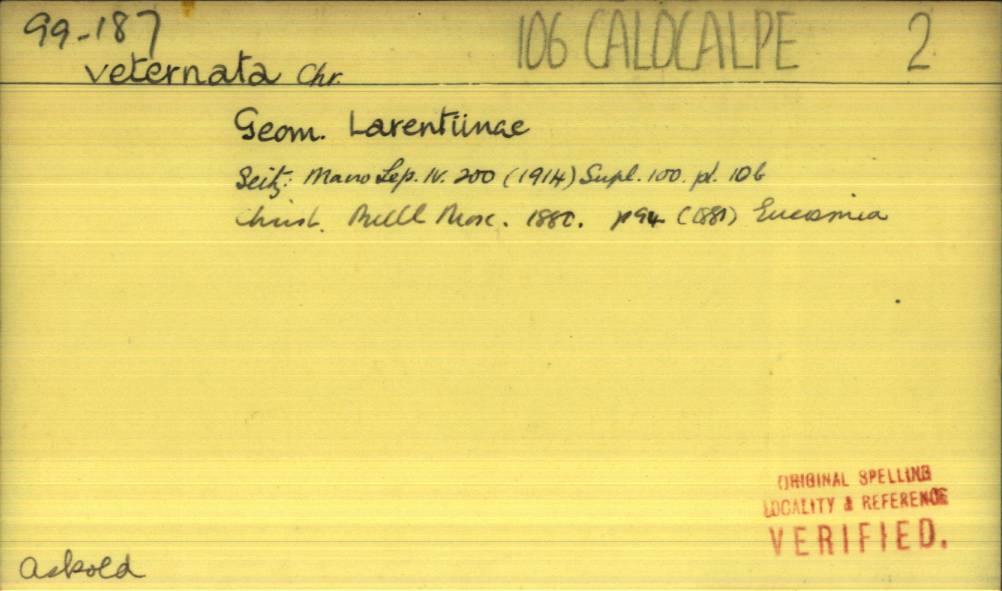 99-187 106 CALOCALPE 2
veternata Chr.
Geom. Larentiinae
Seitz: Macro Lep. IV. 200 (1914) Supl. 100. pl. 10b
Christ. Bull Mosc. 1880. p94 (1881) Eucosmia
ORIGINAL SPELLING
LOCALITY & REFERENCE
VERIFIED.
Askold